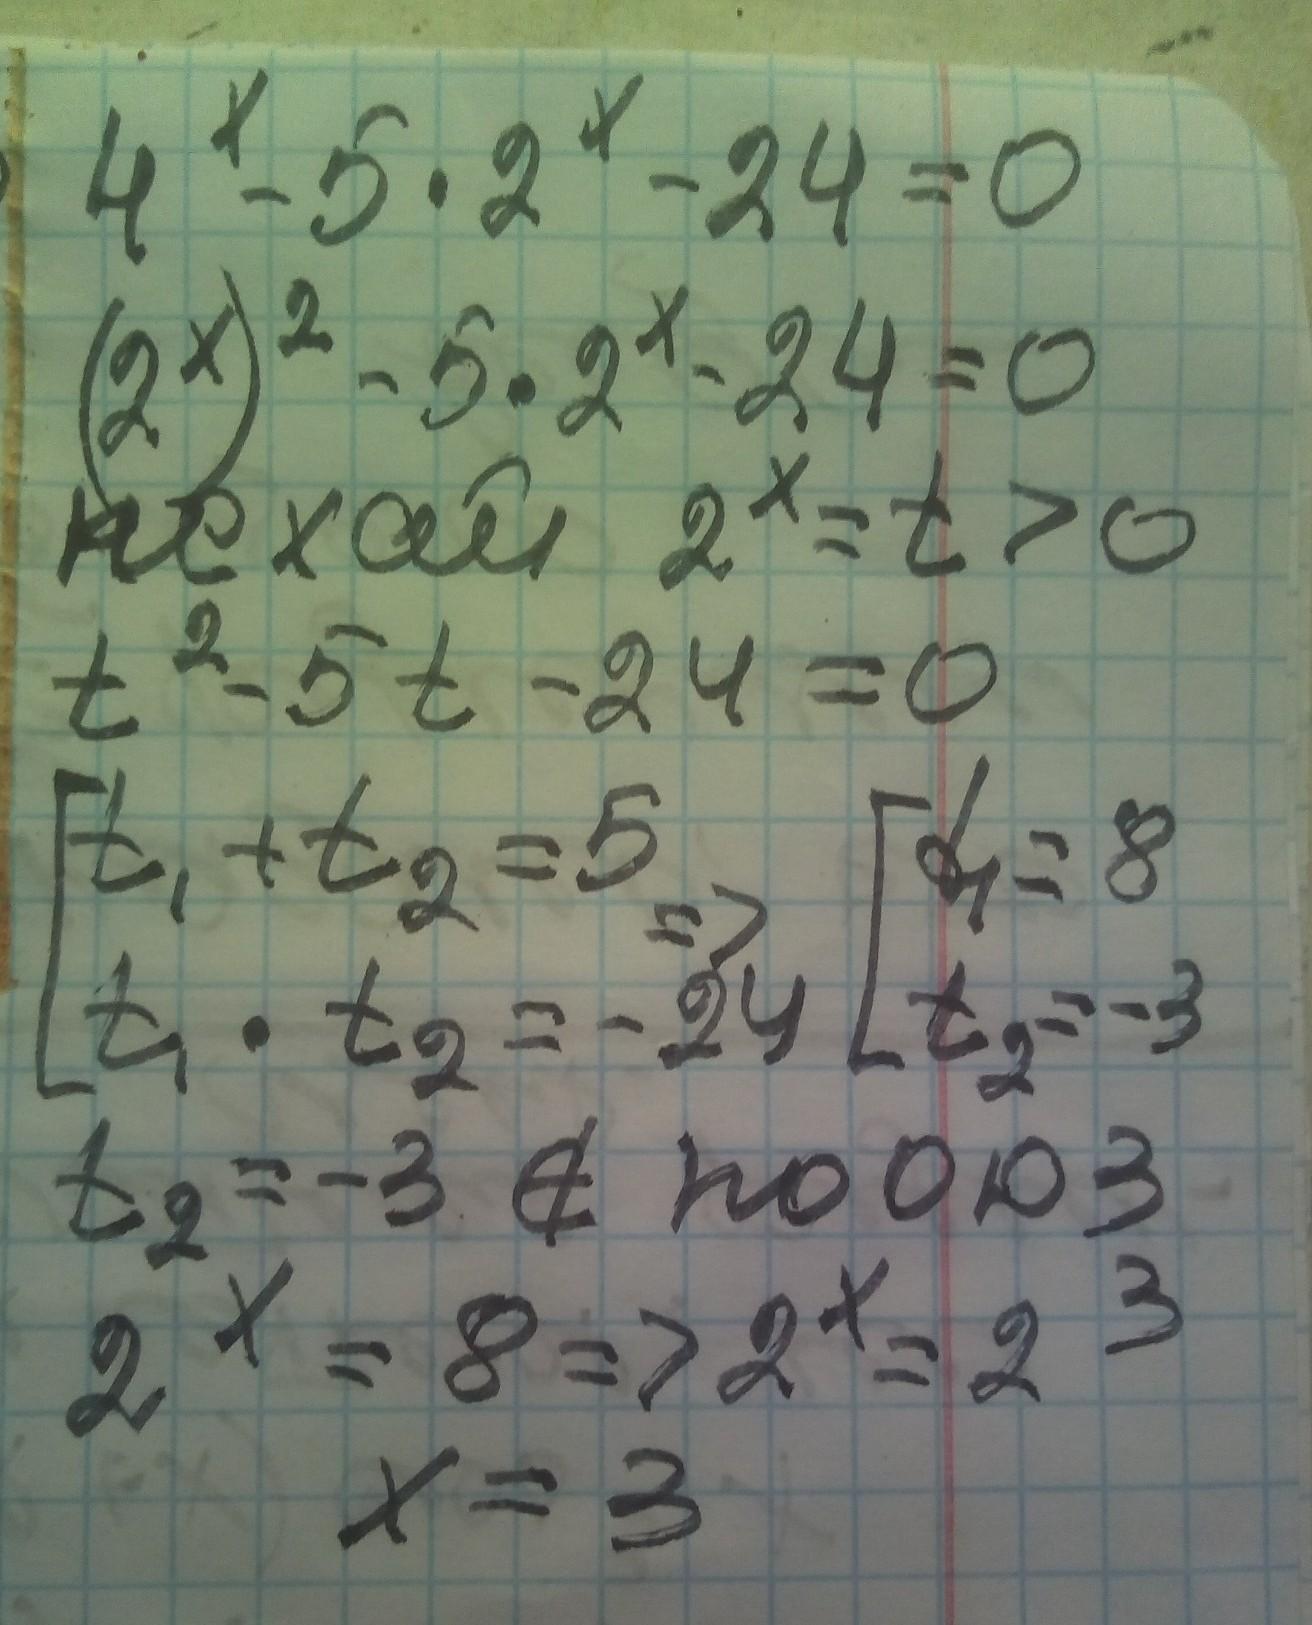 4^x - 5 · 2^x - 24 = 0
(2^x)^2 - 5 · 2^x - 24 = 0
нехай 2^x = t > 0
t^2 - 5t - 24 = 0
[t₁ + t₂ = 5 => [t₁ = 8
t₁ · t₂ = -24 t₂ = -3
t₂ = -3 ∉ по ОДЗ
2^x = 8 => 2^x = 2^3
x = 3